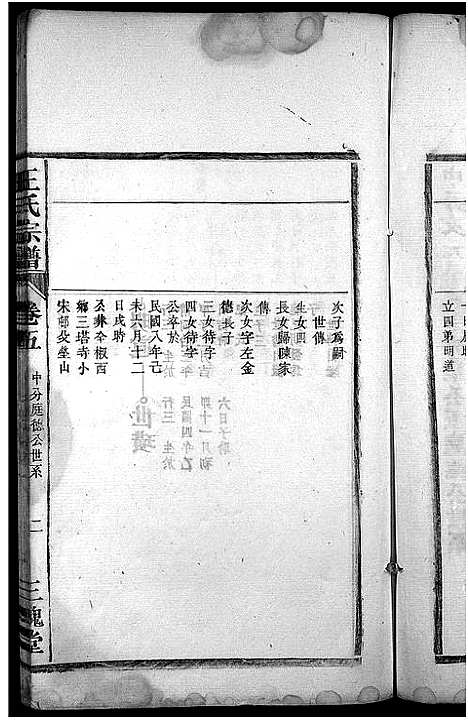 立四弟明道
次子爲嗣
世傳
生女四
長女歸陳家
傳
次女字左金
德長子
三女待字
四女待字
公卒於
民國八年己
未六月十二
日戌時
公葬全椒西
鄉三塔寺小
宋郢灸塋山
王氏宗譜
卷五
中分庭德公世系
二
三槐堂